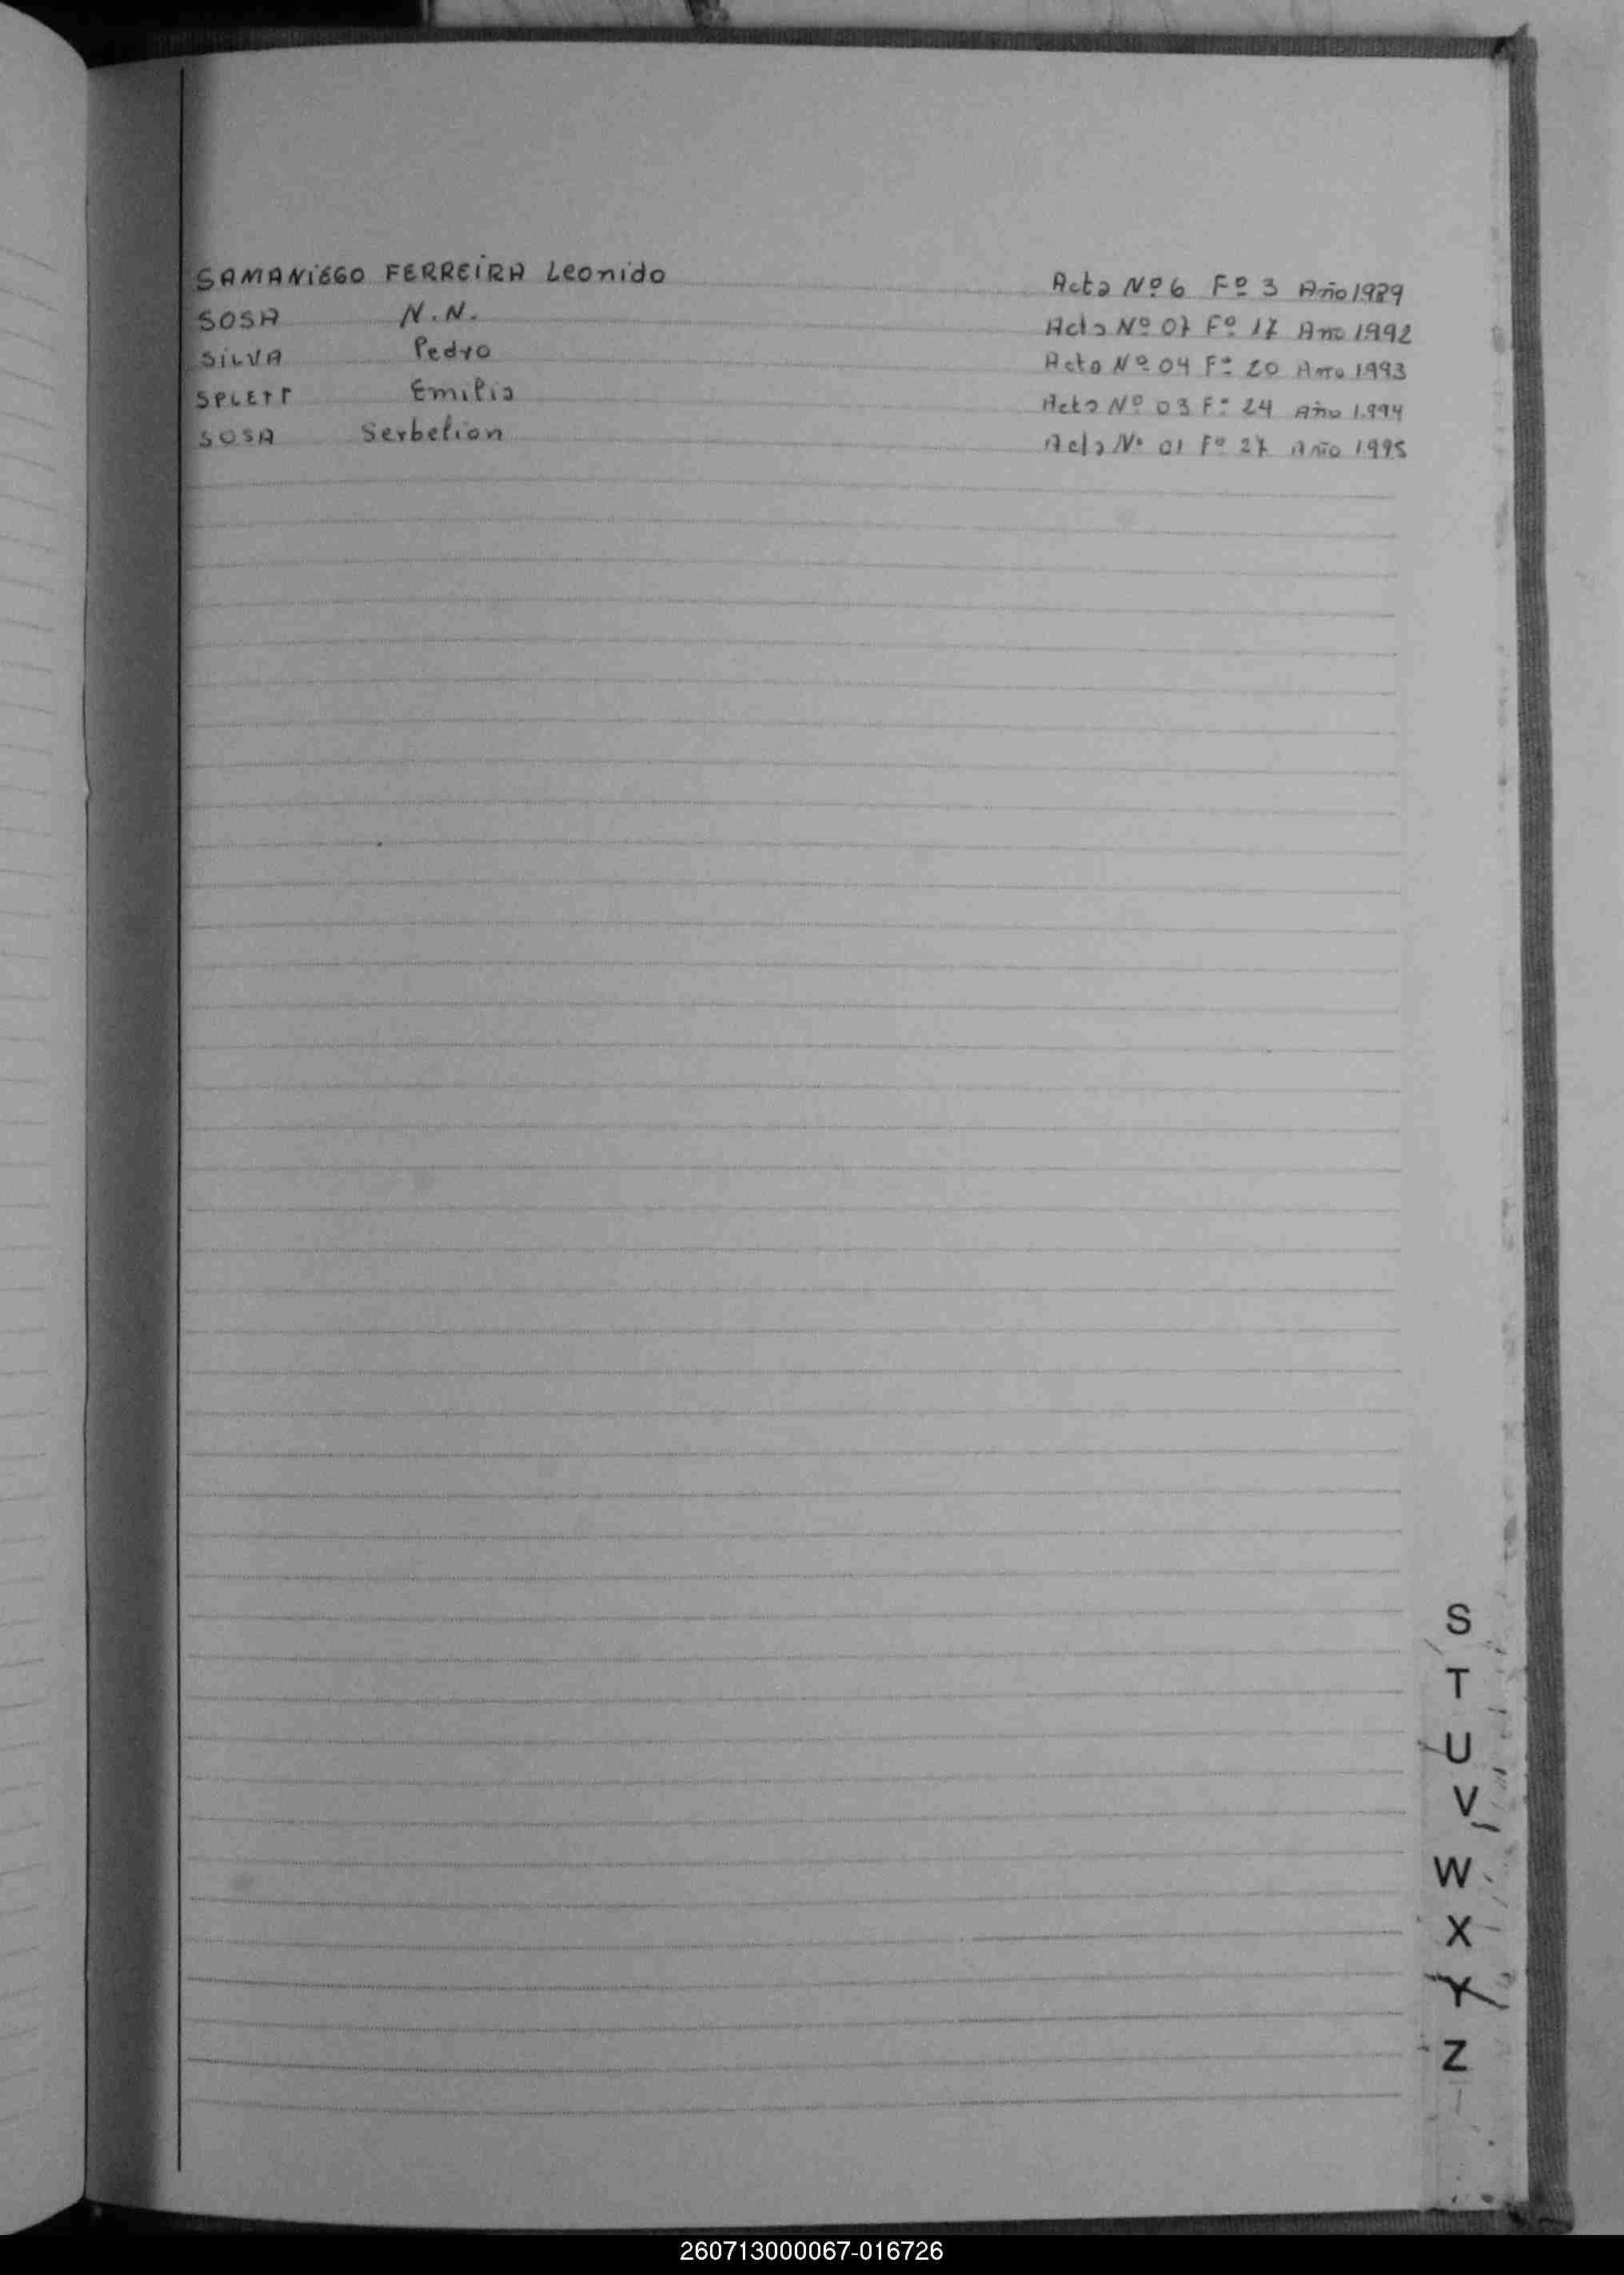 SAMANiEGO FERREiRA Leonido Acta Nº 6 Fº 3 Año 1989
SOSA N.N. Acta Nº 07 Fº 17 Año 1992
SiLVA Pedro Acta Nº 04 Fº 20 Año 1993
SPLETT Emilia Acta Nº 03 Fº 24 Año 1.994
SOSA Serbelion Acta Nº 01 Fº 27 Año 1995
S
T
U
V
W
X
Y
Z
260713000067-016726